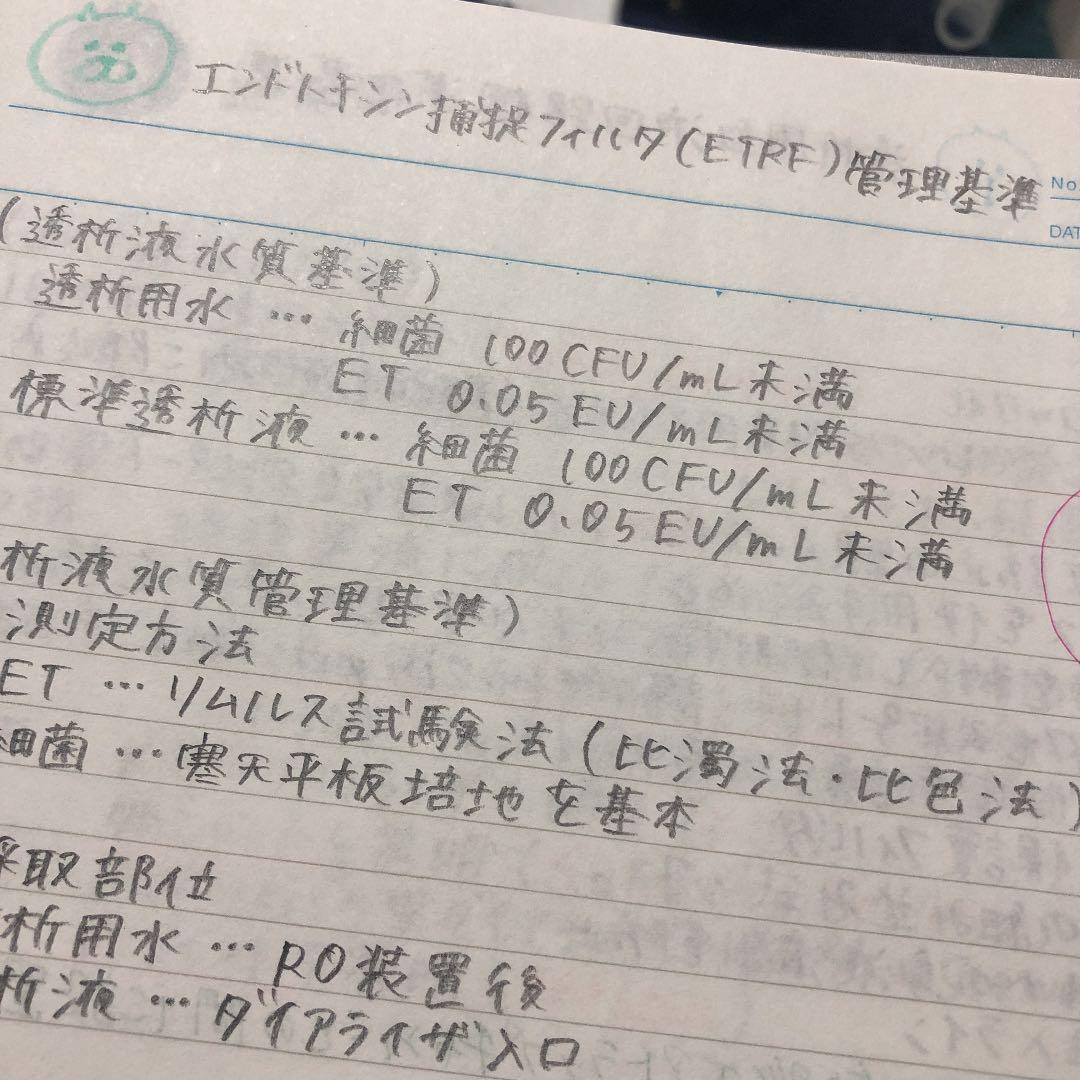 エンドトキシン捕捉フィルタ(ETRF)管理基準
No
DAT
(透析液水質基準)
透析用水 … 細菌 100CFU/mL未満
ET 0.05EU/mL未満
標準透析液 … 細菌 100CFU/mL未満
ET 0.05EU/mL未満
析液水質管理基準)
測定方法
ET … リムルス試験法(比濁法・比色法)
細菌 … 寒天平板培地を基本
採取部位
析用水 … RO装置後
析液 … ダイアライザ入口